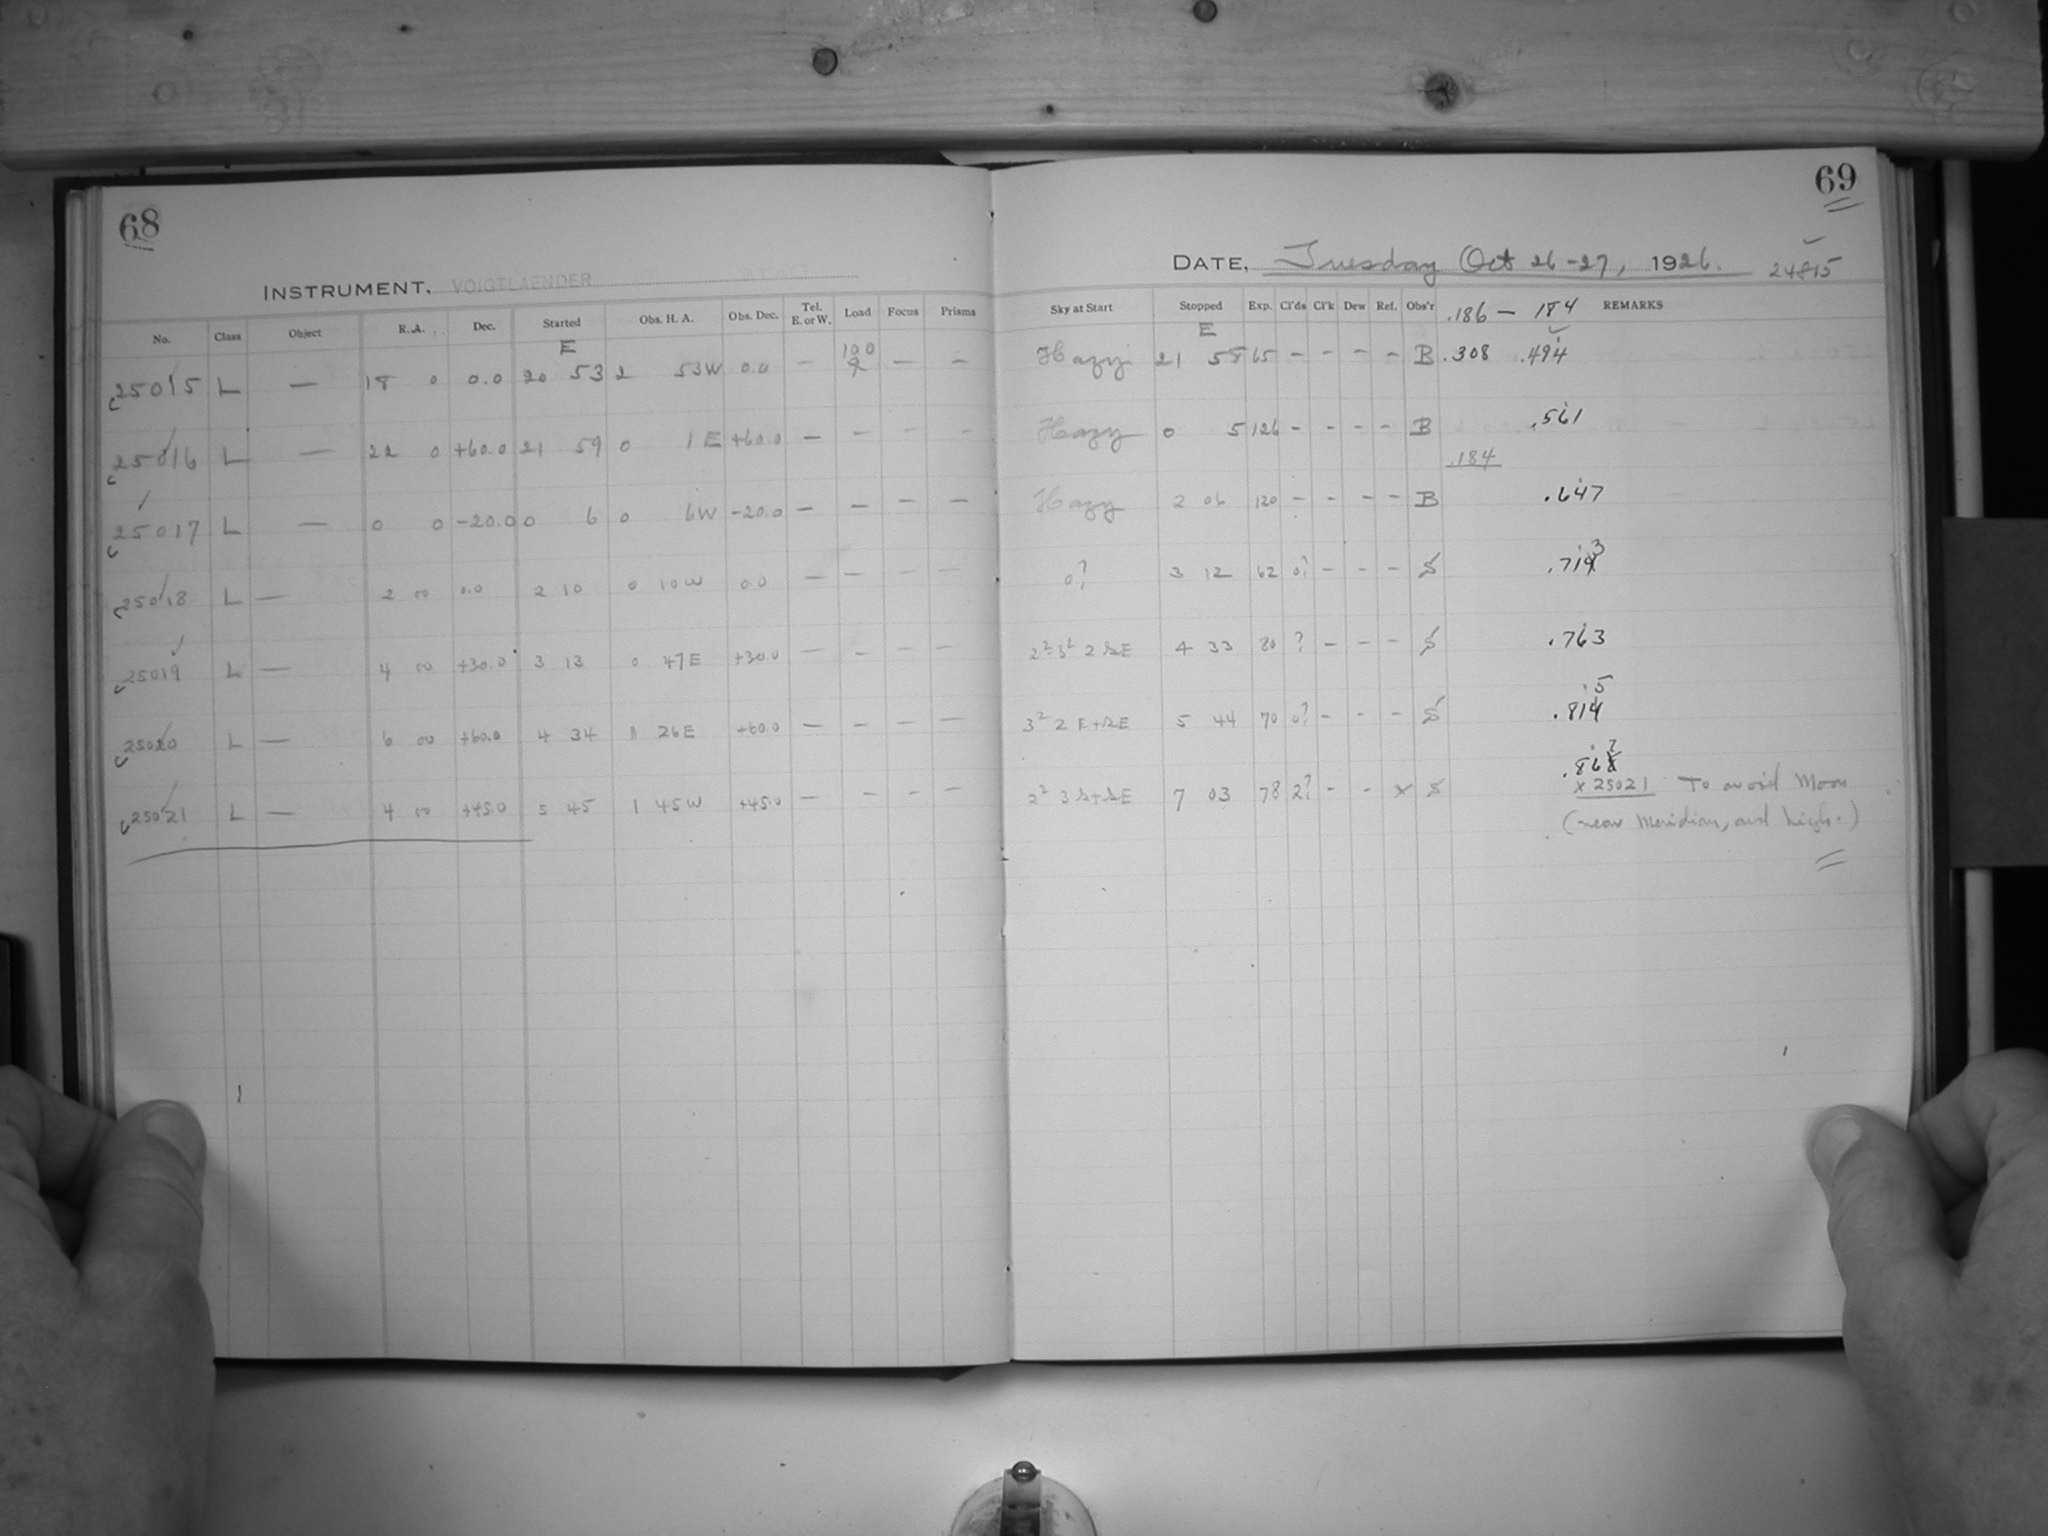 68
INSTRUMENT, VOIGTLAENDER
No. Class Object R.A. Dec. Started Obs. H. A. Obs. Dec. Tel. E. or W. Load Focus Prisms
E 100
25015 L — 18 0 0.0 20 53 2 53W 0.0 — — —
25016 L — 22 0 +60.0 21 59 0 1 E +60.0 — — - —
25017 L — 0 0 -20.0 0 6 0 6W -20.0 — — — —
25018 L — 2 00 0.0 2 10 0 10 W 0.0 — — — —
25019 L — 4 00 +30.0 3 13 0 47 E +30.0 — - — —
25020 L — 6 00 +60.0 4 34 1 26 E +60.0 — — — —
25021 L — 4 00 +45.0 5 45 1 45 W +45.0 — — — —
69
DATE, Tuesday Oct 26-27, 1926. 24815
Sky at Start Stopped Exp. Cl'ds Cl'k Dew Ref. Obs'r .186 — 184 REMARKS
E
Hazy 21 58 65 - - - - B .308 .494
Hazy 0 5 126 - - - - B .561
.184
Hazy 2 06 120 - - - - B .647
0? 3 12 62 0? - - - S .714 3
2² 3² 2 SE 4 33 80 ? - - - S .763
3² 2 E+SE 5 44 70 0? - - - S .814 5
2² 3 S+SE 7 03 78 2? - - x S .868 7
x 25021 To avoid Moon
(near Meridian, and high.)